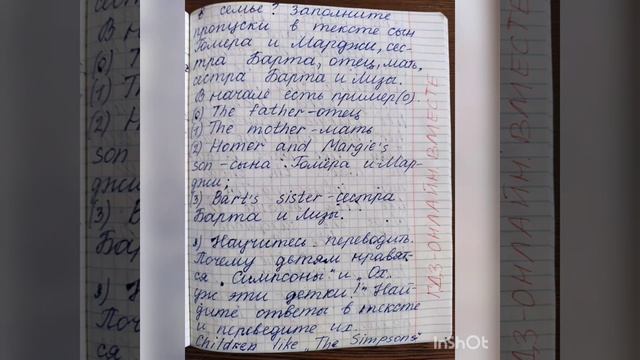 в семье? Заполните
пропуски в тексте сын
Гомера и Марджи, сес-
тра Барта, отец, мать,
сестра Барта и Лиза.
В начале есть пример (0).
(0) The father-отец
(1) The mother-мать
(2) Homer and Margie's
son-сына Гомера и Мар-
джи;
(3) Bart's sister-сестра
Барта и Лизы.
Научитесь переводить.
Почему детям нравят-
ся „Симпсоны" и „Ох
уж эти детки!" Най-
дите ответы в тексте
и переведите их.
Children like „The Simpsons"
ГДЗ-ОНЛАЙН. ВМЕСТЕ
InShOt